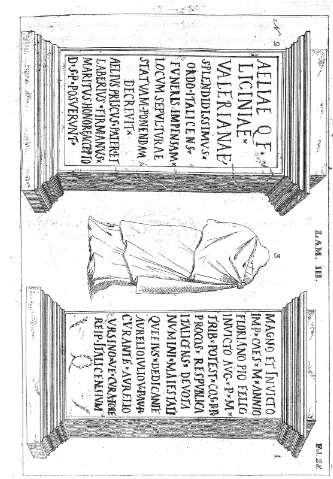 LAM. III.
N 2
AELIAE Q F·
LICINIAE·
VALERIANAE·
SPLENDIDISSIMVS·
ORDO·ITALICENS·
FVNERIS·IMPENSAM·
LOCVM·SEPVLTVRAE
STATVAM·PONENDAM
DECRIVIT·
AELIVS PRICVS·PATER ET
LABERIVS·FIRMANVS·
MARITVS·HONORE ACCEPTO
D·SP·POSVERVNT·
3
1
MAGNO ET INVICTO
IMP·CAES·M·ANNIO
FLORIANO PIO
INVICTO AVG·P·M·
TRIB·POTEST·COS
PROCOS RESPVBLICA
ITALICENS DEVOTA
NVMINI MAIESTATI
DEDICANTE
AVRELIO IVLIO
CVRANTE·AVRELIO
VRSINO VE CVRATORE
REIP ITALICENSIVM